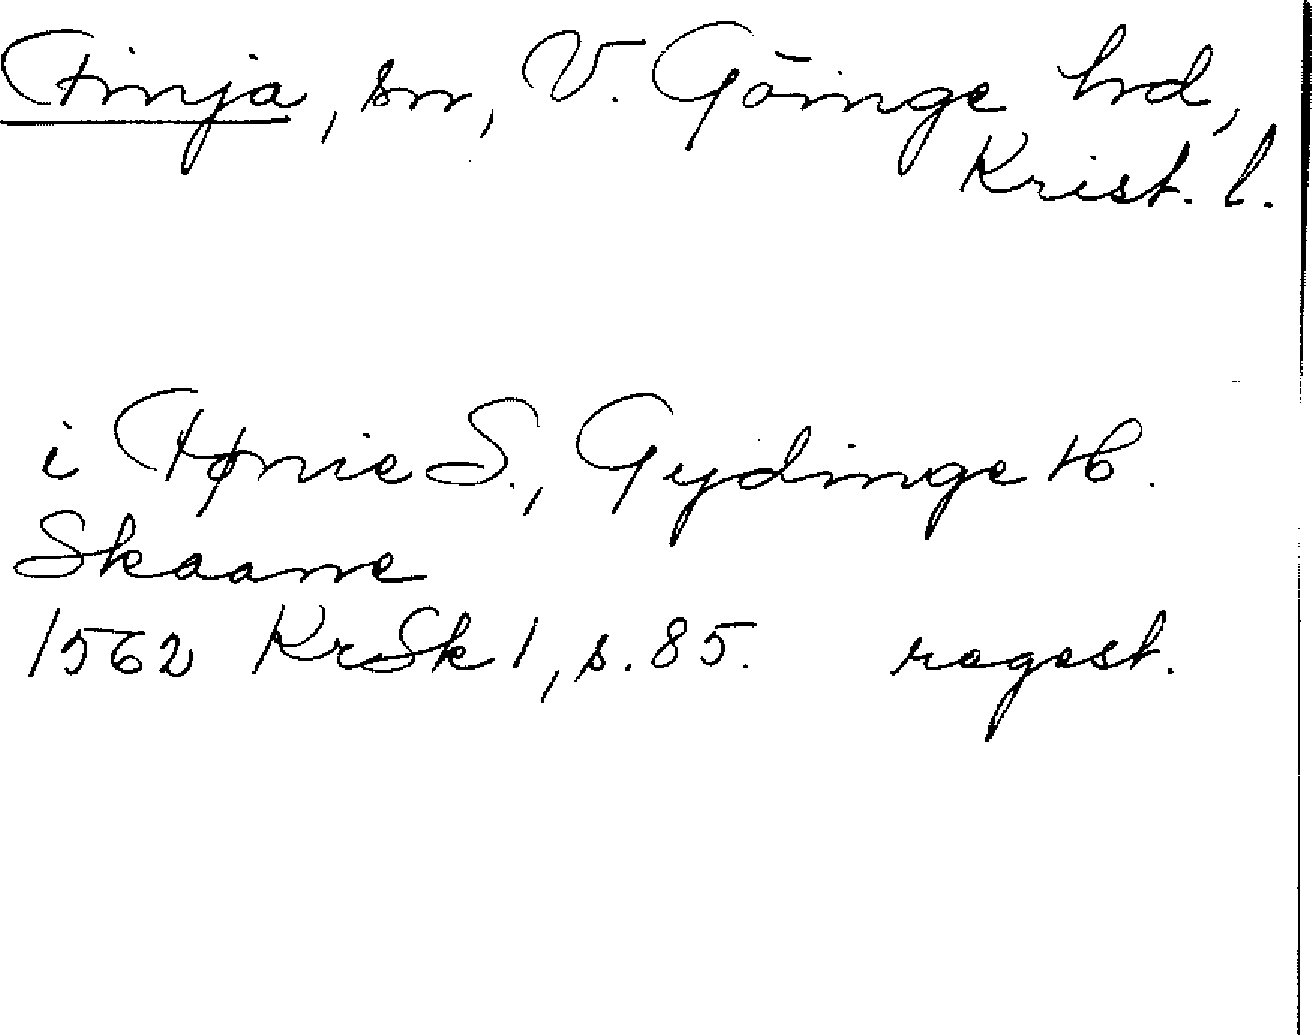 Finja, sn, V. Göinge hd,
Krist. l.
i Fønie S., Gydinge H.
Skaane
1562 KrSk 1, s. 85. regest.